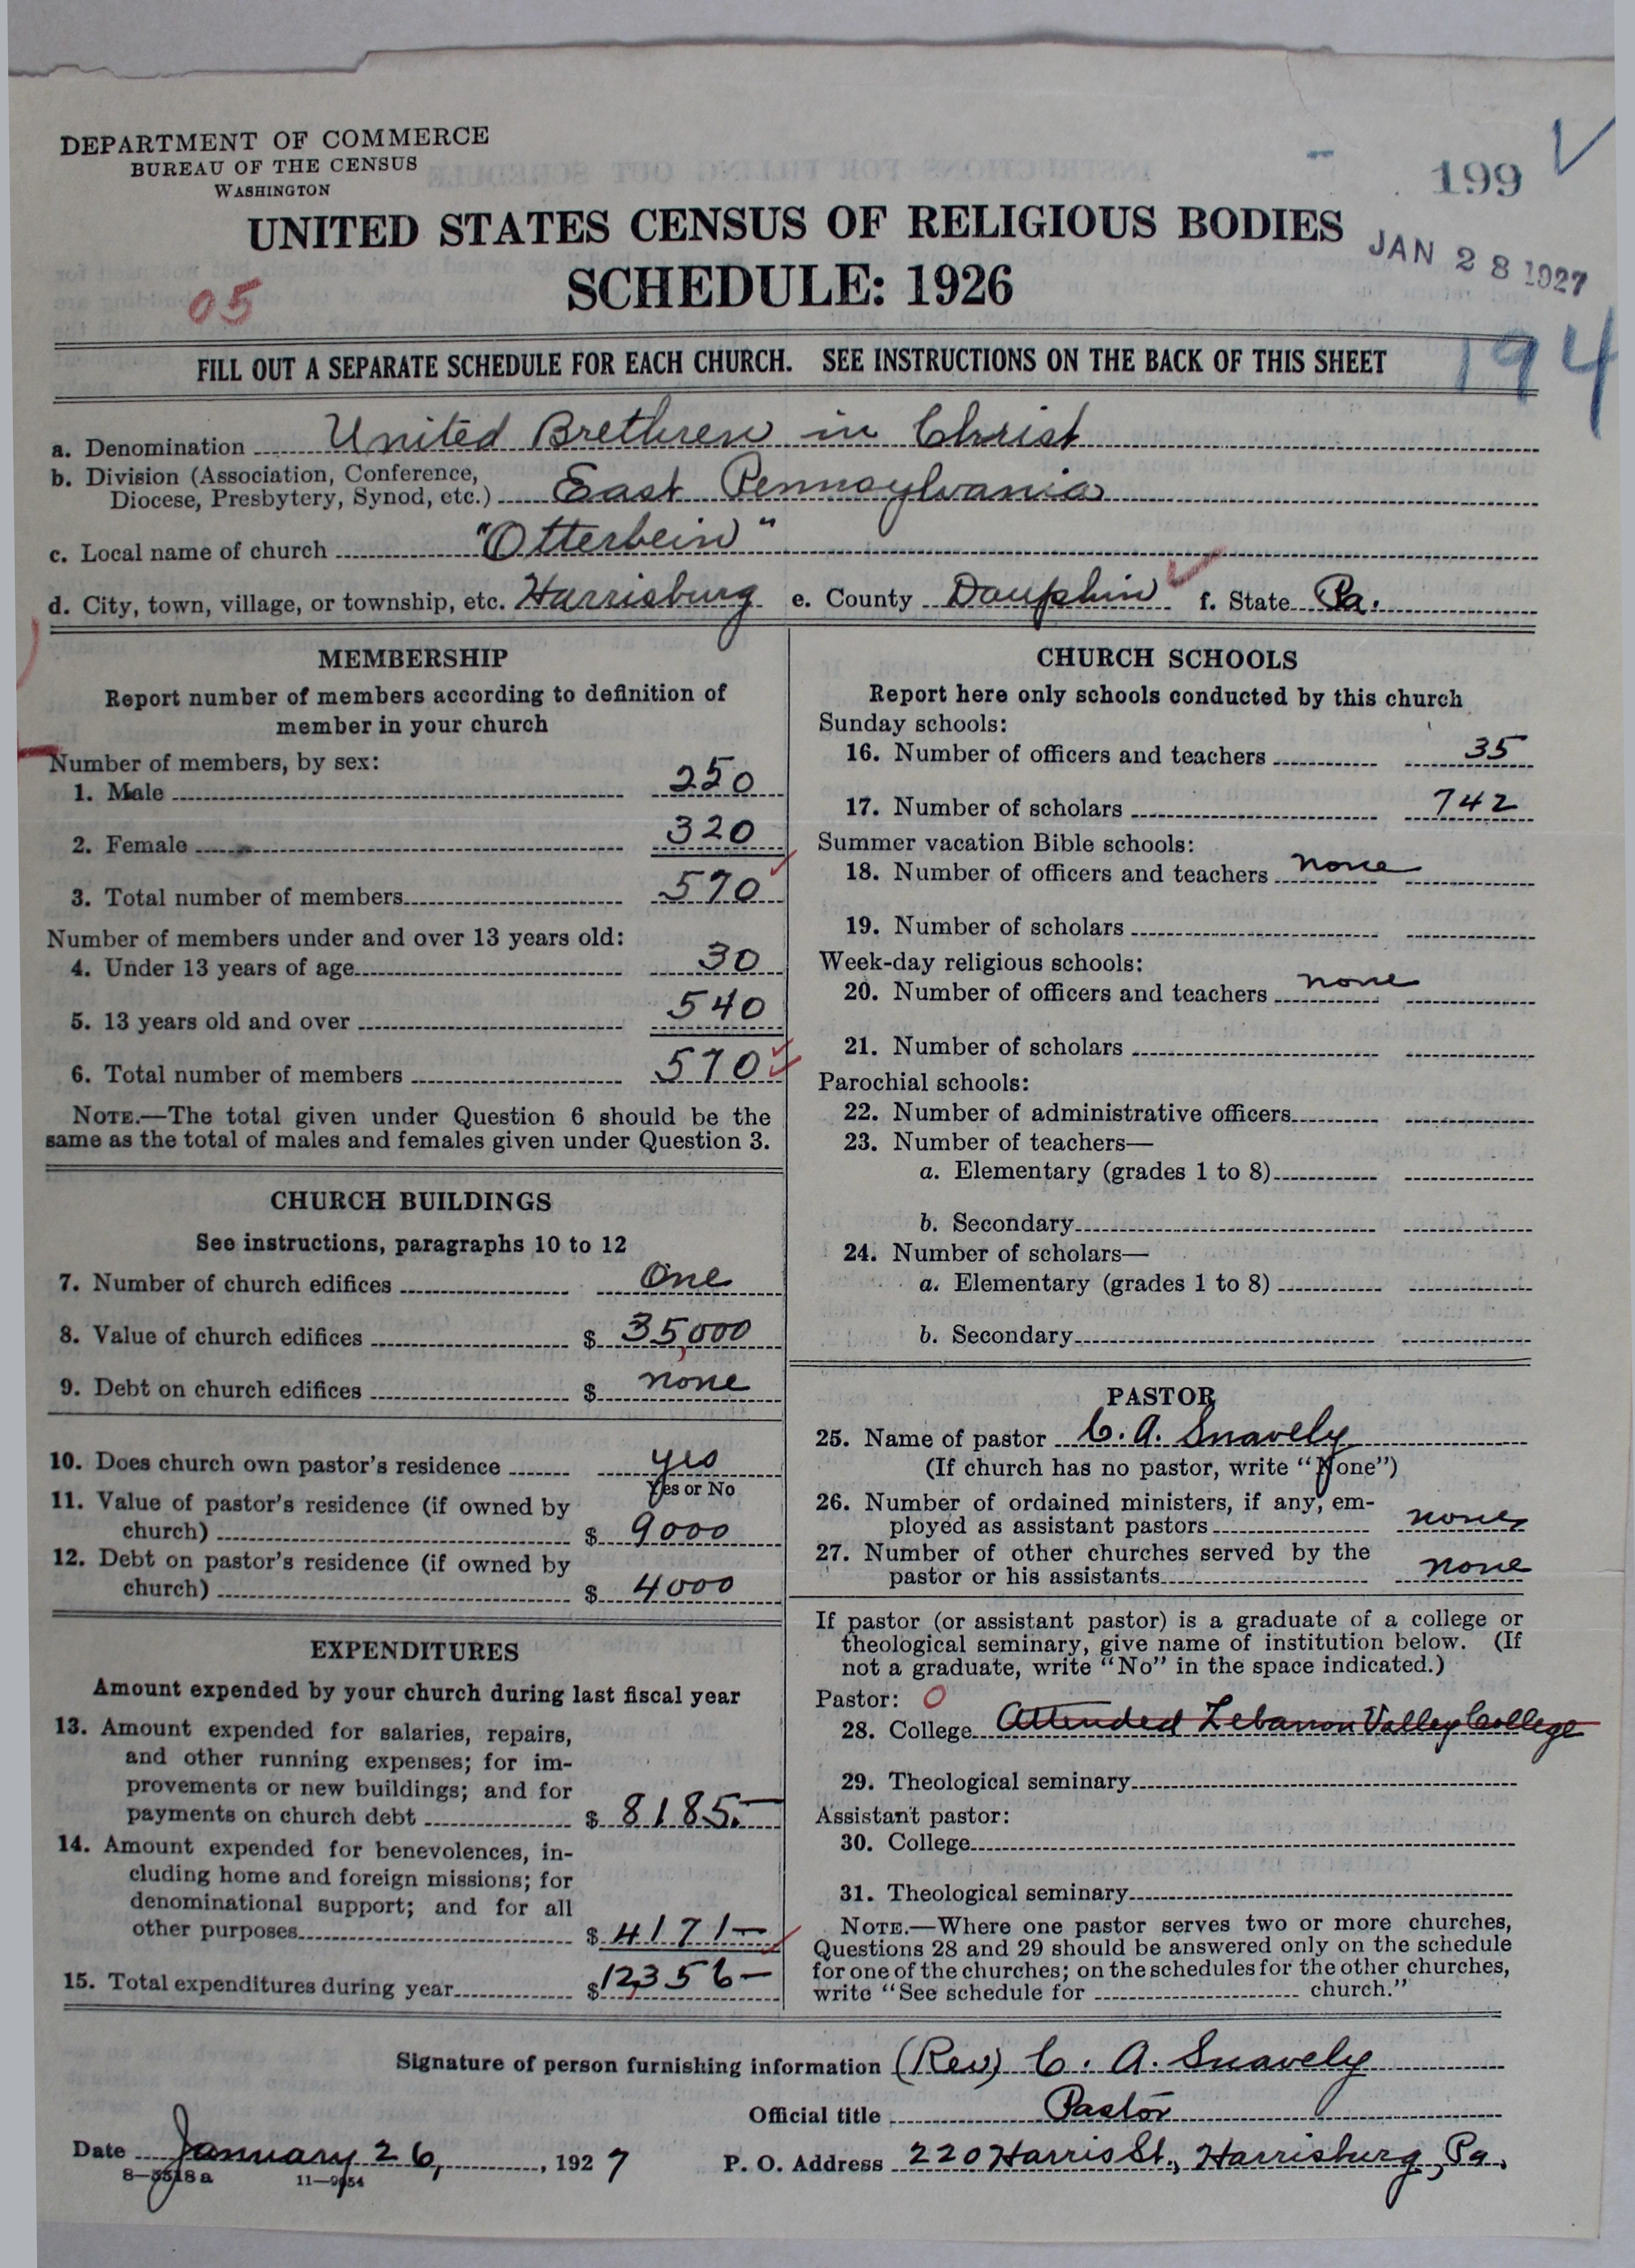 DEPARTMENT OF COMMERCE
BUREAU OF THE CENSUS
WASHINGTON
199
UNITED STATES CENSUS OF RELIGIOUS BODIES
JAN 28 1927
SCHEDULE: 1926
05
194
FILL OUT A SEPARATE SCHEDULE FOR EACH CHURCH. SEE INSTRUCTIONS ON THE BACK OF THIS SHEET
a. Denomination United Brethren in Christ
b. Division (Association, Conference,
Diocese, Presbytery, Synod, etc.) East Pennsylvania
c. Local name of church "Otterbein"
d. City, town, village, or township, etc. Harrisburg e. County Dauphin f. State Pa.
MEMBERSHIP
Report number of members according to definition of
member in your church
Number of members, by sex:
1. Male 250
2. Female 320
3. Total number of members 570
Number of members under and over 13 years old:
4. Under 13 years of age 30
5. 13 years old and over 540
6. Total number of members 570
NOTE.—The total given under Question 6 should be the
same as the total of males and females given under Question 3.
CHURCH BUILDINGS
See instructions, paragraphs 10 to 12
7. Number of church edifices One
8. Value of church edifices $ 35,000
9. Debt on church edifices $ none
10. Does church own pastor's residence yes
Yes or No
11. Value of pastor's residence (if owned by
church) $ 9000
12. Debt on pastor's residence (if owned by
church) $ 4000
EXPENDITURES
Amount expended by your church during last fiscal year
13. Amount expended for salaries, repairs,
and other running expenses; for im-
provements or new buildings; and for
payments on church debt $ 8185.—
14. Amount expended for benevolences, in-
cluding home and foreign missions; for
denominational support; and for all
other purposes $ 4171—
15. Total expenditures during year $ 12,356—
CHURCH SCHOOLS
Report here only schools conducted by this church
Sunday schools:
16. Number of officers and teachers 35
17. Number of scholars 742
Summer vacation Bible schools:
18. Number of officers and teachers none
19. Number of scholars
Week-day religious schools:
20. Number of officers and teachers none
21. Number of scholars
Parochial schools:
22. Number of administrative officers
23. Number of teachers—
a. Elementary (grades 1 to 8)
b. Secondary
24. Number of scholars—
a. Elementary (grades 1 to 8)
b. Secondary
PASTOR
25. Name of pastor C. A. Snavely
(If church has no pastor, write "None")
26. Number of ordained ministers, if any, em-
ployed as assistant pastors none
27. Number of other churches served by the
pastor or his assistants none
If pastor (or assistant pastor) is a graduate of a college or
theological seminary, give name of institution below. (If
not a graduate, write "No" in the space indicated.)
Pastor: O
28. College Attended Lebanon Valley College
29. Theological seminary
Assistant pastor:
30. College
31. Theological seminary
NOTE.—Where one pastor serves two or more churches,
Questions 28 and 29 should be answered only on the schedule
for one of the churches; on the schedules for the other churches,
write "See schedule for church."
Signature of person furnishing information (Rev) C. A. Snavely
Official title Pastor
Date January 26, 1927 P. O. Address 220 Harris St., Harrisburg, Pa.
8—5518a 11—9954